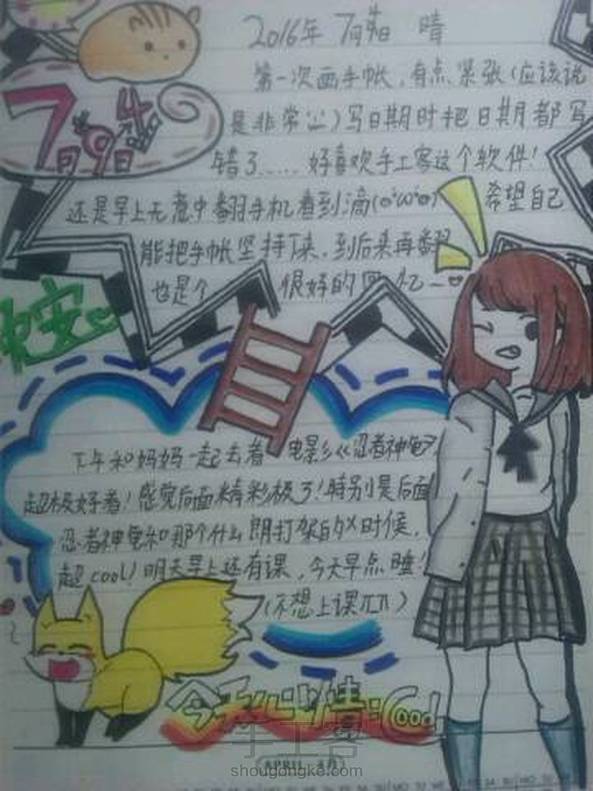 2016年 7月9日 晴
7月9日
第一次画手帐，有点紧张（应该说
是非常）写日期时把日期都写
错了……好喜欢手工客这个软件！
还是早上无意中翻手机看到滴 希望自己
能把手帐坚持下来，到后来再翻
也是个 很好的回忆~
晚安
下午和妈妈一起去看 电影《忍者神龟》
超极好看！感觉后面精彩极了！特别是后面
忍者神龟和那个什么朗打架的时候，
超cool！明天早上还有课，今天早点睡！
（不想上课）
今天心情：Good
手工客
APRIL 4月
shougongke.com